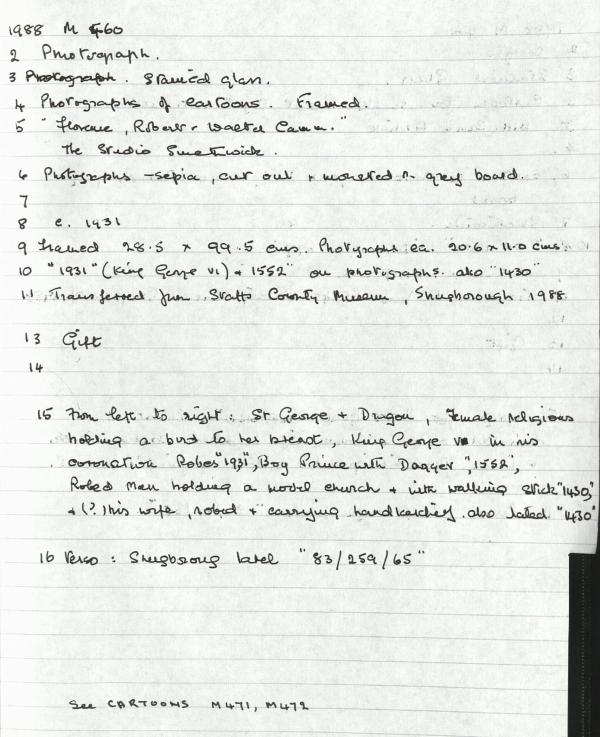 1988 M 460
2 Photograph.
3 Photograph. Stained glass.
4 Photographs of cartoons. Framed.
5 "Florence, Robert + Walter Camm."
The Studio Smethwick.
6 Photographs - sepia, cut out + mounted on grey board.
7
8 c. 1931
9 Framed 28.5 x 99.5 cms. Photographs ea. 20.6 x 11.0 cms.
10 "1931" (King George VI) + "1552" on photographs. also "1430"
11 Transferred from Staffs County Museum, Shugborough 1988
13 Gift
14
15 From left to right: St George + Dragon, Female religious
holding a bird to her breast, King George V in his
coronation Robes "1931", Boy Prince with Dagger, "1552",
Robed Man holding a model church + with walking stick "1430,"
+ (?) his wife, robed + carrying handkerchief. also dated "1430"
16 Verso: Shugborough label "83/259/65"
See CARTOONS M471, M472